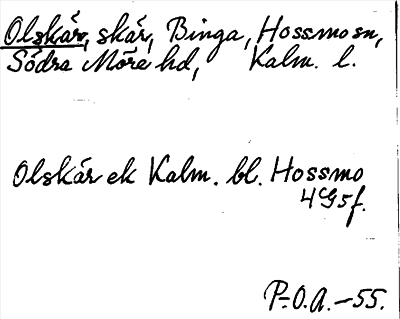 Olskär, skär, Binga, Hossmo sn,
Södra Möre hd, Kalm. l.
Olskär ek Kalm. bl. Hossmo
4G5f.
P-O.A.-55.